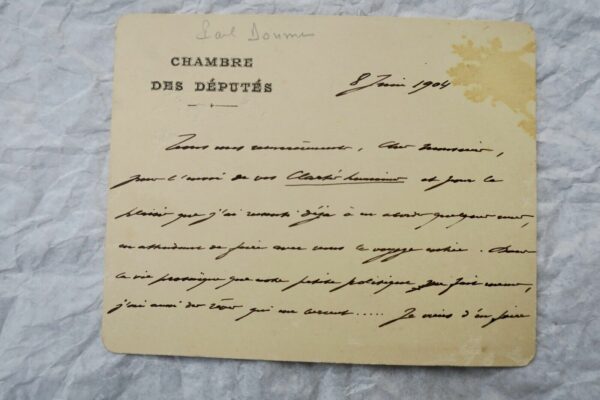 Paul Doumer
CHAMBRE
DES DÉPUTÉS
8 Juin 1904
Tous mes remerciements, cher Monsieur,
pour l'envoi de vos Clartés humaines et pour le
plaisir que j'ai ressenti déjà à en aborder quelques unes,
en attendant de faire avec vous le voyage entier. Dans
la vie prosaïque que notre petite politique me fait mener,
j'ai aussi des qui me ..... Je viens d'en faire